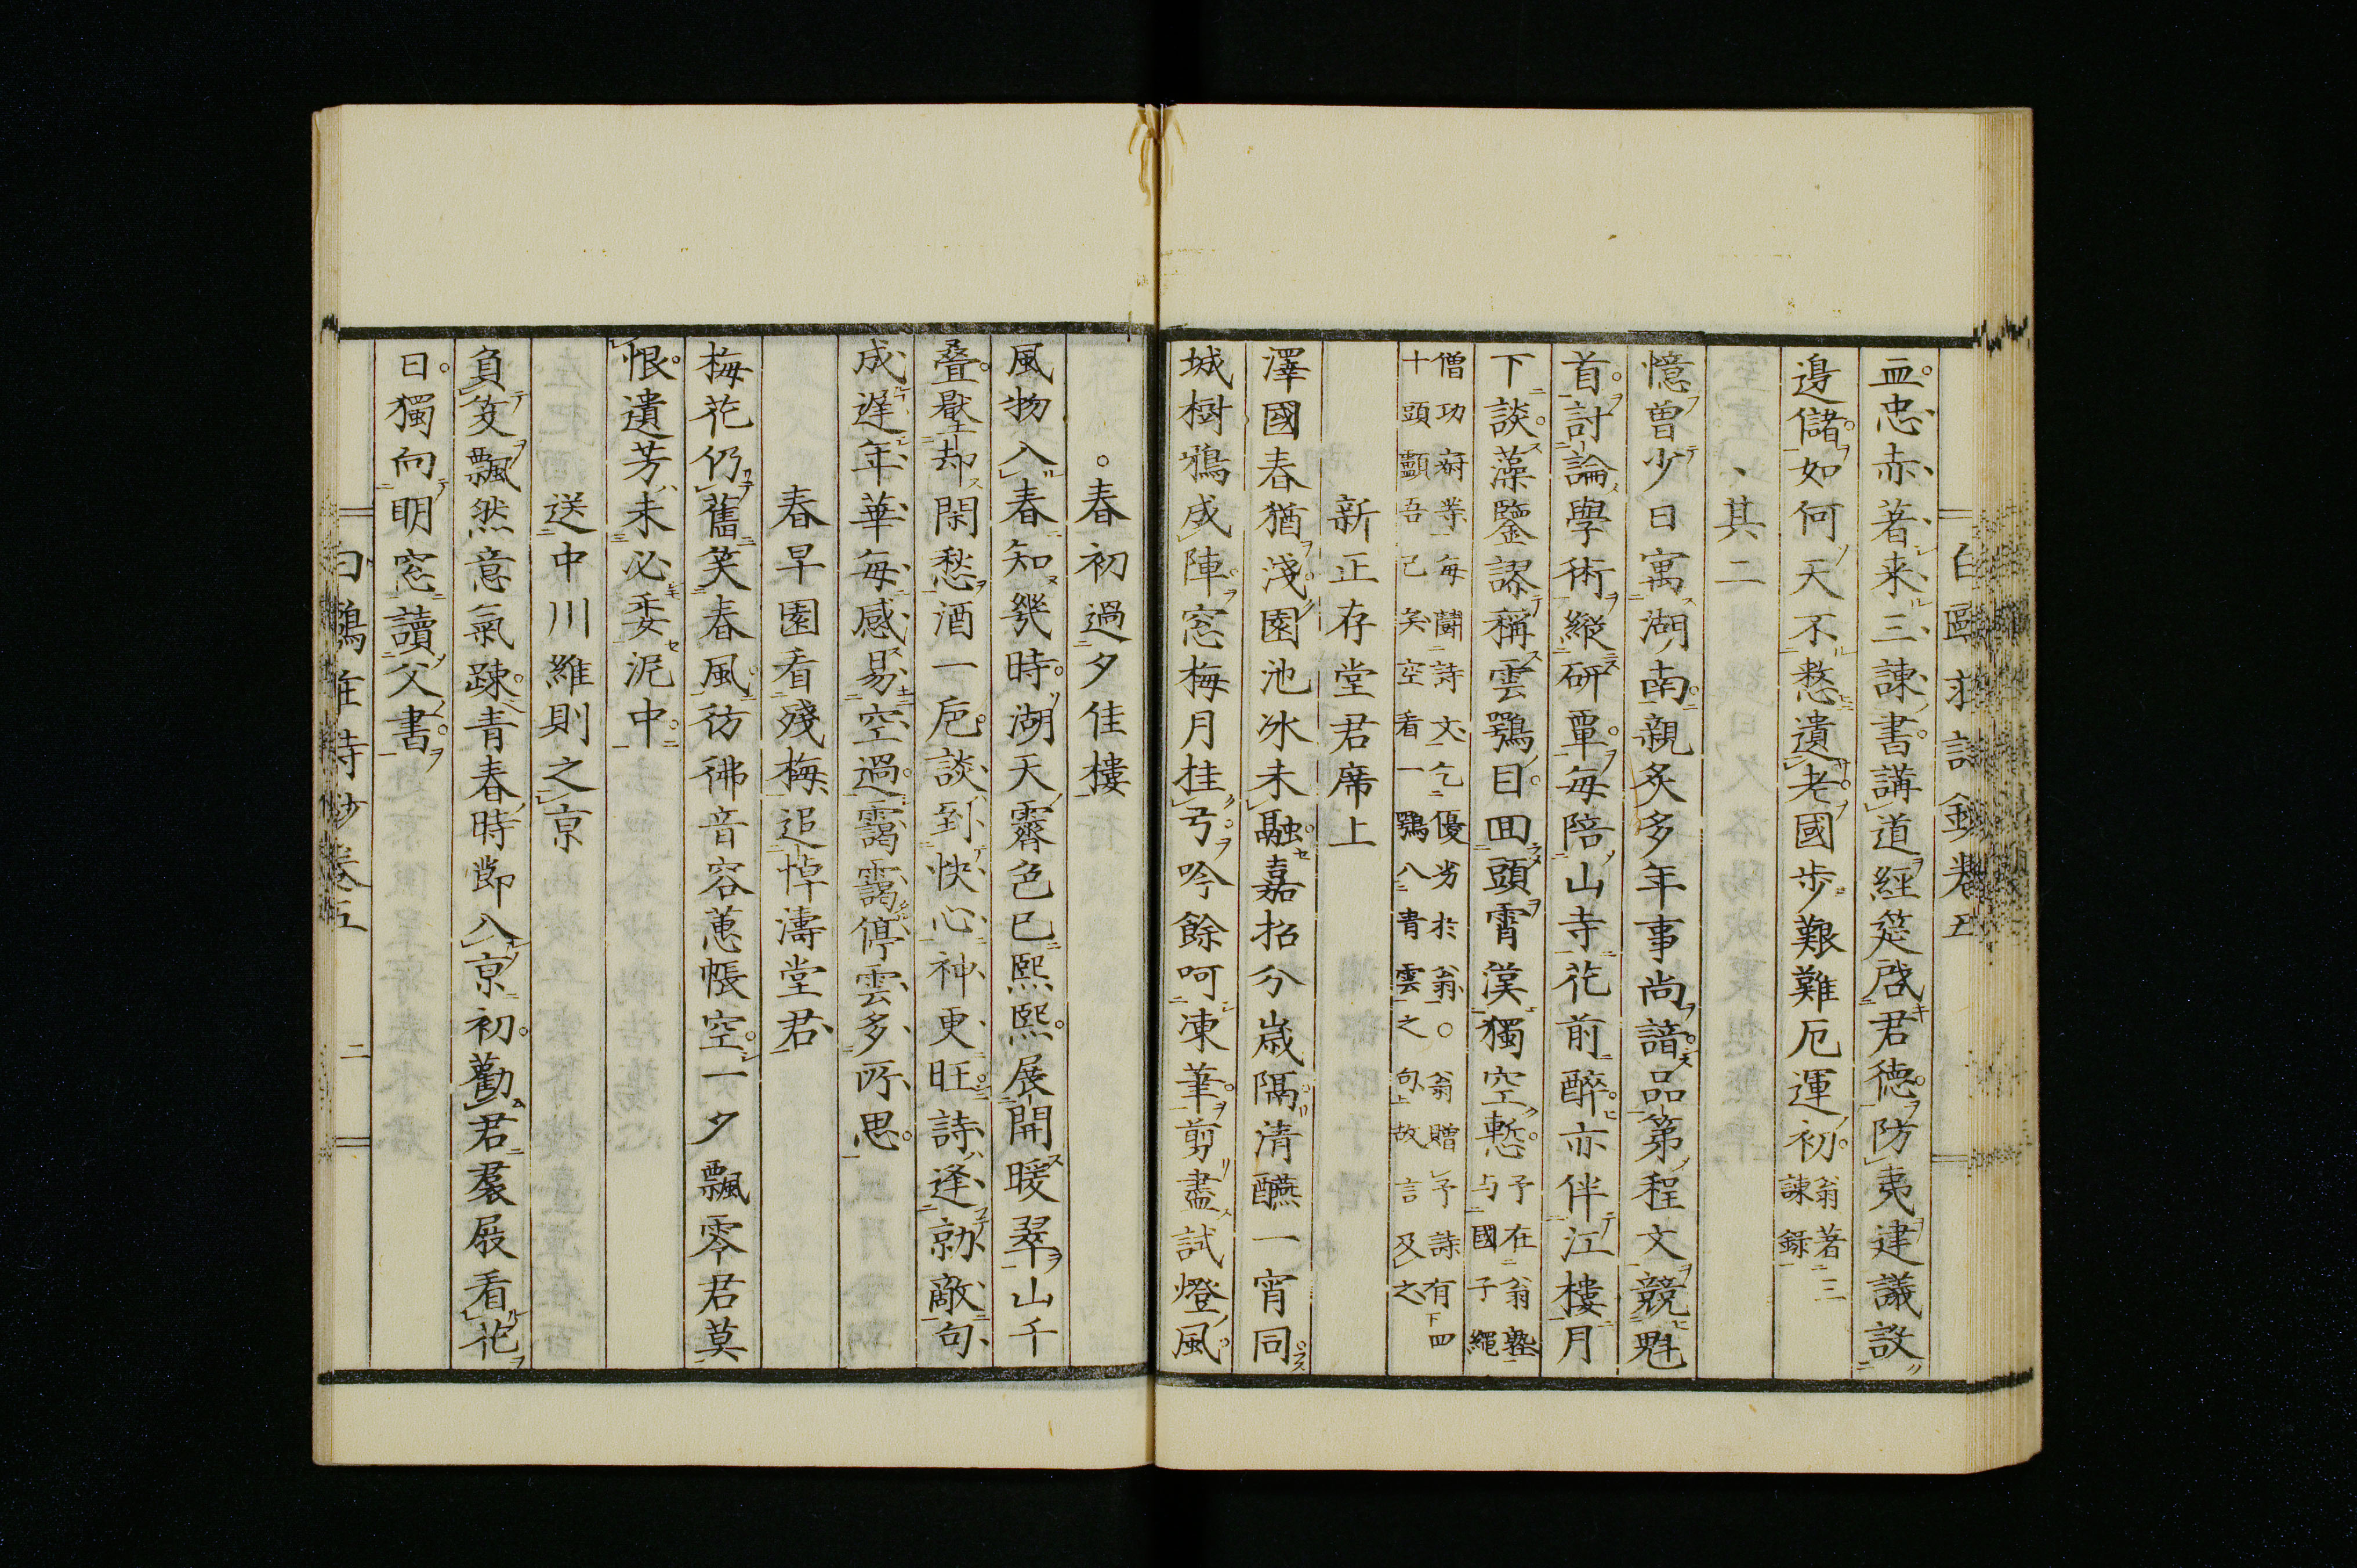 血忠赤著来三諫書講道經筵啓君德防夷建議設
邊儲如何天不憖遺老國歩艱難厄運初翁著三諫録
其二
憶曽少日寓湖南親炙多年事尚諳品第程文競魁
首討論學術縱研覃每陪山寺花前醉亦伴江樓月
下談藻鑒謬稱雲鶚目囬頭霄漢獨空慙予在翁塾与國子繩
僧功府業每鬪詩文乞優劣於翁○翁贈予詩有四
十頭顱吾已矣空看一鶚入青雲之句上故言及之
新正存堂君席上
澤國春猶淺園池冰未融嘉招分歲隔清醼一宵同
城樹鴉成陣窓梅月挂弓吟餘呵凍筆剪盡試燈風
春初過夕佳樓
風物入春知幾時湖天霽色已熙熙展開暖翠山千
疊壓却閑愁酒一卮談到快心神更旺詩逢勍敵句
成遲年華每感易空過靄靄停雲多所思
春早園看殘梅追悼濤堂君
梅花仍舊笑春風彷彿音容蕙帳空一夕飄零君莫
恨遺芳未必委泥中
送中川維則之京
負笈飄然意氣踈青春時節入京初勸君羣屐看花
日獨向明窓讀父書
二